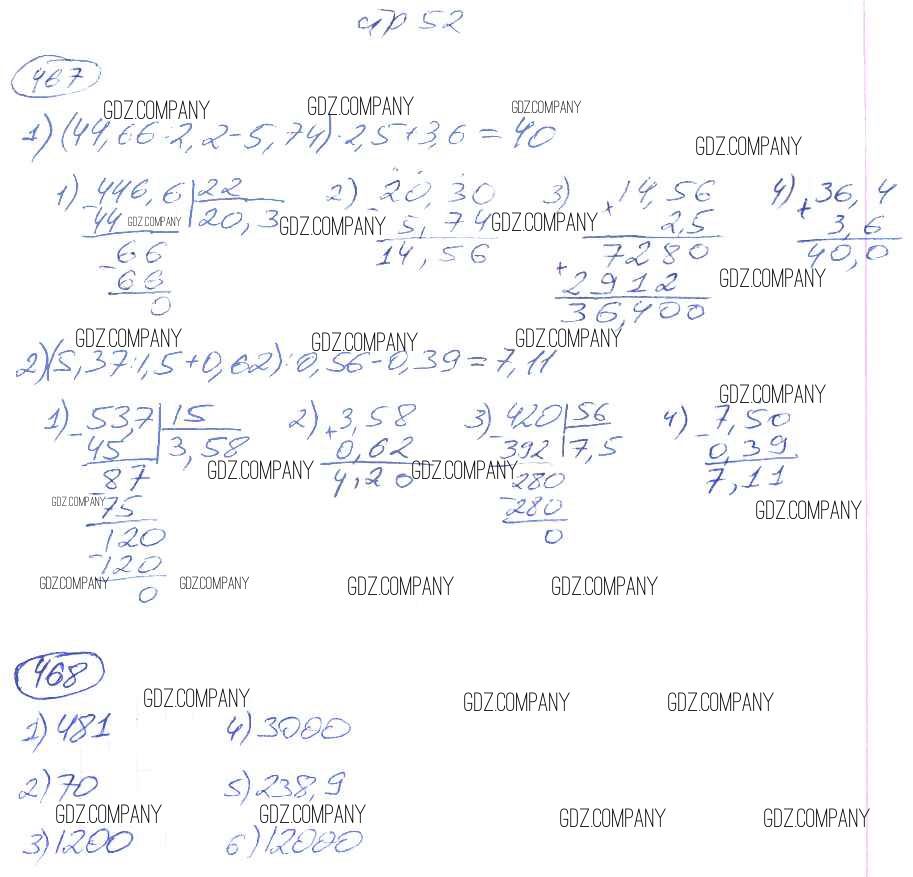 стр 52
467
GDZ.COMPANY GDZ.COMPANY GDZ.COMPANY
1) (44,66:2,2-5,74)·2,5+3,6=40
GDZ.COMPANY
1) -446,6 |22 2) -20,30 3) +14,56 4) +36,4
44 GDZ.COMPANY 20,3 GDZ.COMPANY 5,74 GDZ.COMPANY 2,5 3,6
66 14,56 7280 40,0
-66 +2912 GDZ.COMPANY
0 36,400
GDZ.COMPANY GDZ.COMPANY GDZ.COMPANY
2) (5,37:1,5+0,62):0,56-0,39=7,11
GDZ.COMPANY
1) -53,7 |15 2) +3,58 3) -420 |56 4) -7,50
45 3,58 0,62 392 7,5 0,39
GDZ.COMPANY GDZ.COMPANY
87 4,20 280 7,11
GDZ.COMPANY -75 -280 GDZ.COMPANY
120 0
-120
GDZ.COMPANY GDZ.COMPANY GDZ.COMPANY GDZ.COMPANY
0
468
GDZ.COMPANY GDZ.COMPANY GDZ.COMPANY
1) 481 4) 3000
2) 70 5) 238,9
GDZ.COMPANY GDZ.COMPANY GDZ.COMPANY GDZ.COMPANY
3) 1200 6) 12000